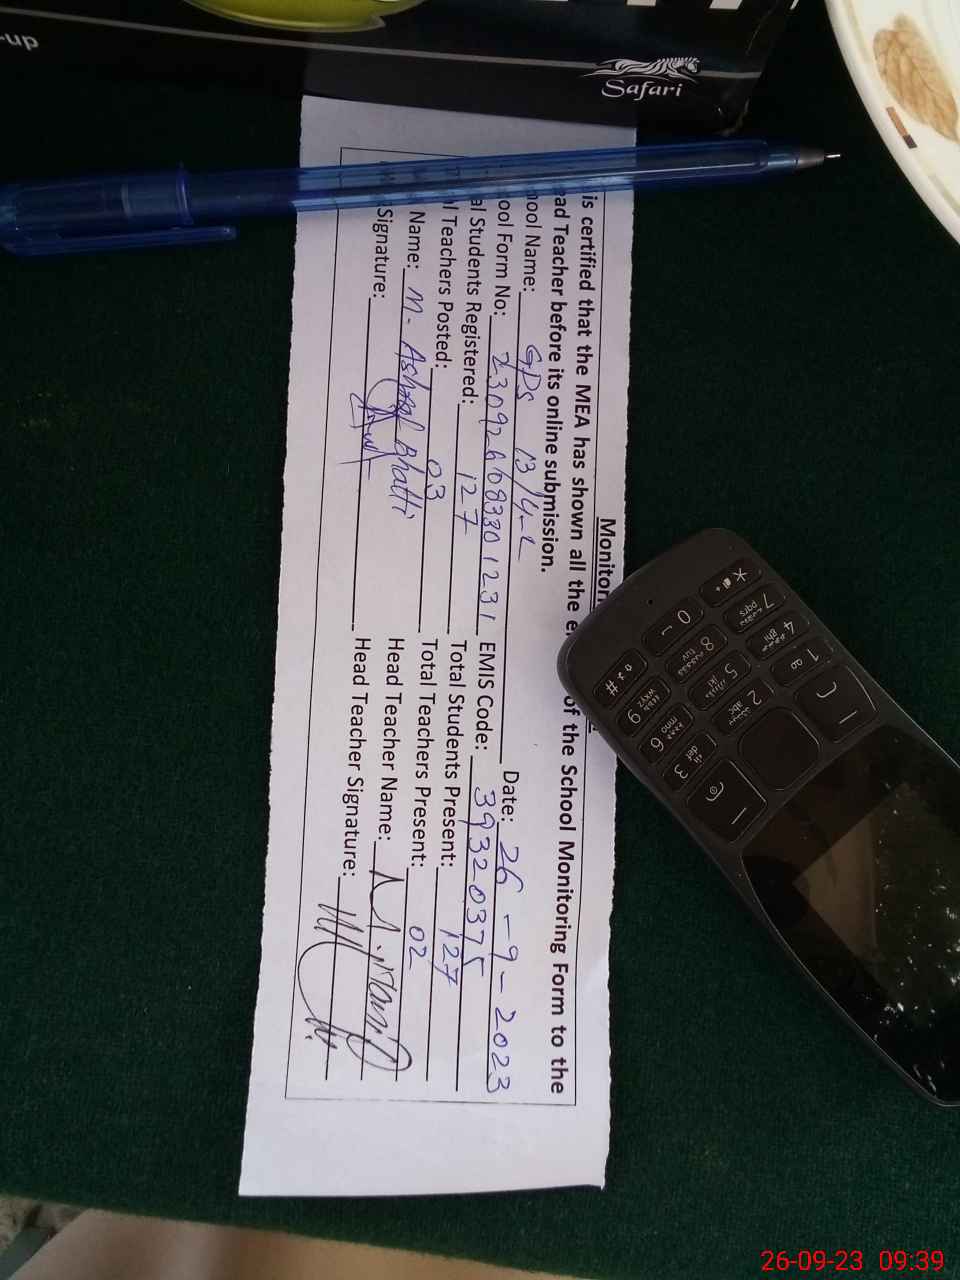 -up
Safari
Monitor
is certified that the MEA has shown all the e of the School Monitoring Form to the
ad Teacher before its online submission.
ool Name: GPS 13/4-L Date: 26-9-2023
ool Form No: 230926083301231 EMIS Code: 39320375
al Students Registered: 127 Total Students Present: 127
l Teachers Posted: 03 Total Teachers Present: 02
Name: M. Ashraf Bhatti Head Teacher Name:
Signature: Head Teacher Signature:
1
2 abc
3 def
4 ghi
5 jkl
6 mno
7 pqrs
8 tuv
9 wxyz
*
0
#
26-09-23 09:39